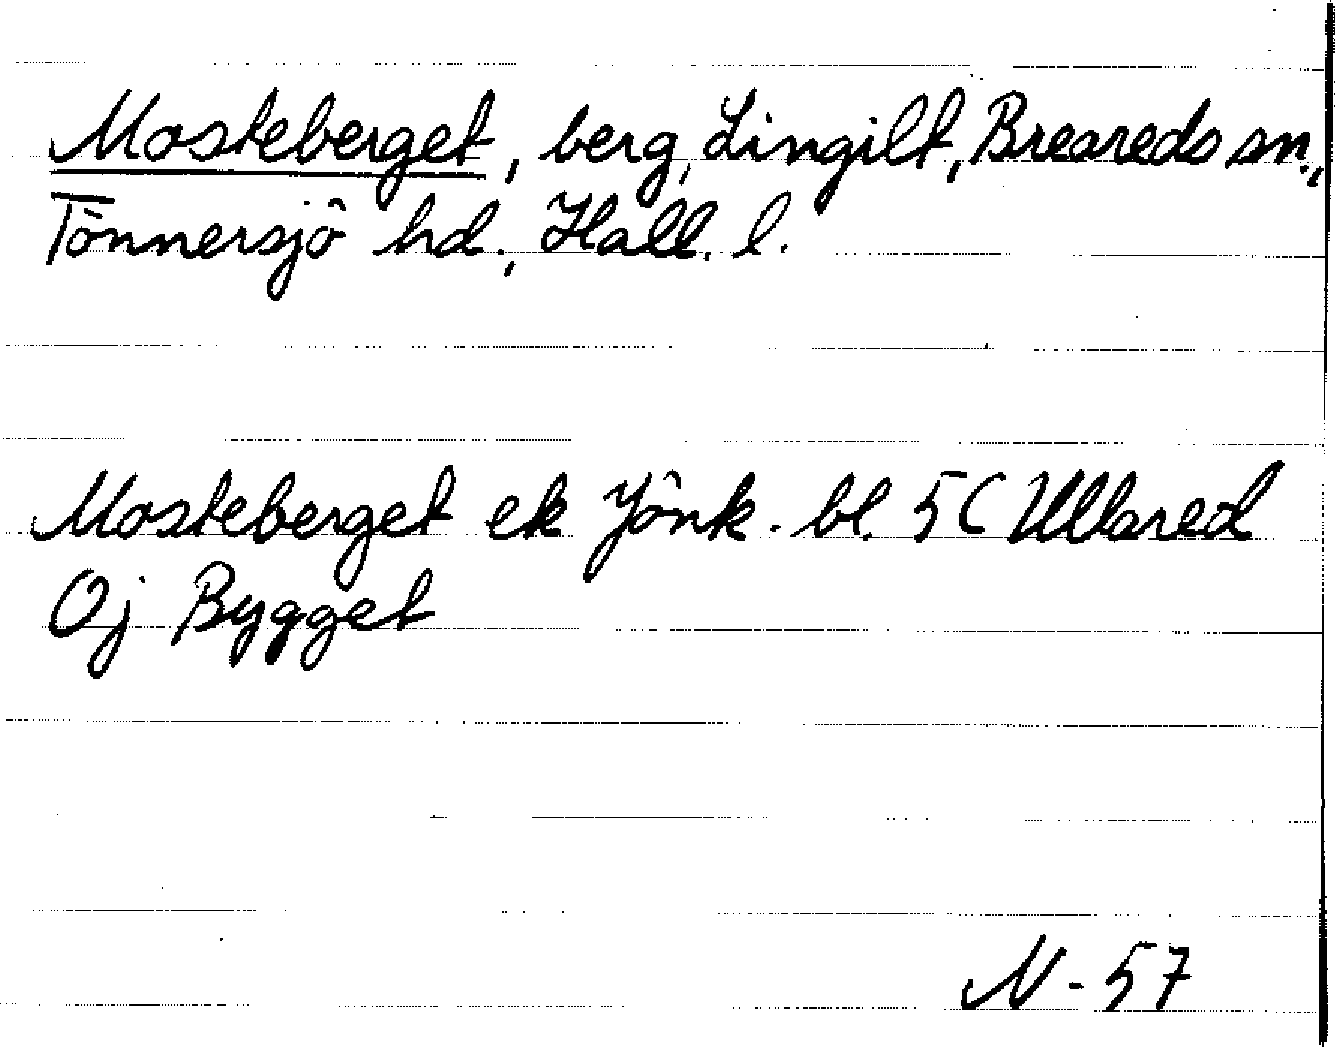 Mosteberget, berg, Lingilt, Breareds sn.,
Tönnersjö hd., Hall. l.
Mosteberget ek Jönk. bl. 5C Ullared
Oj Bygget
N-57